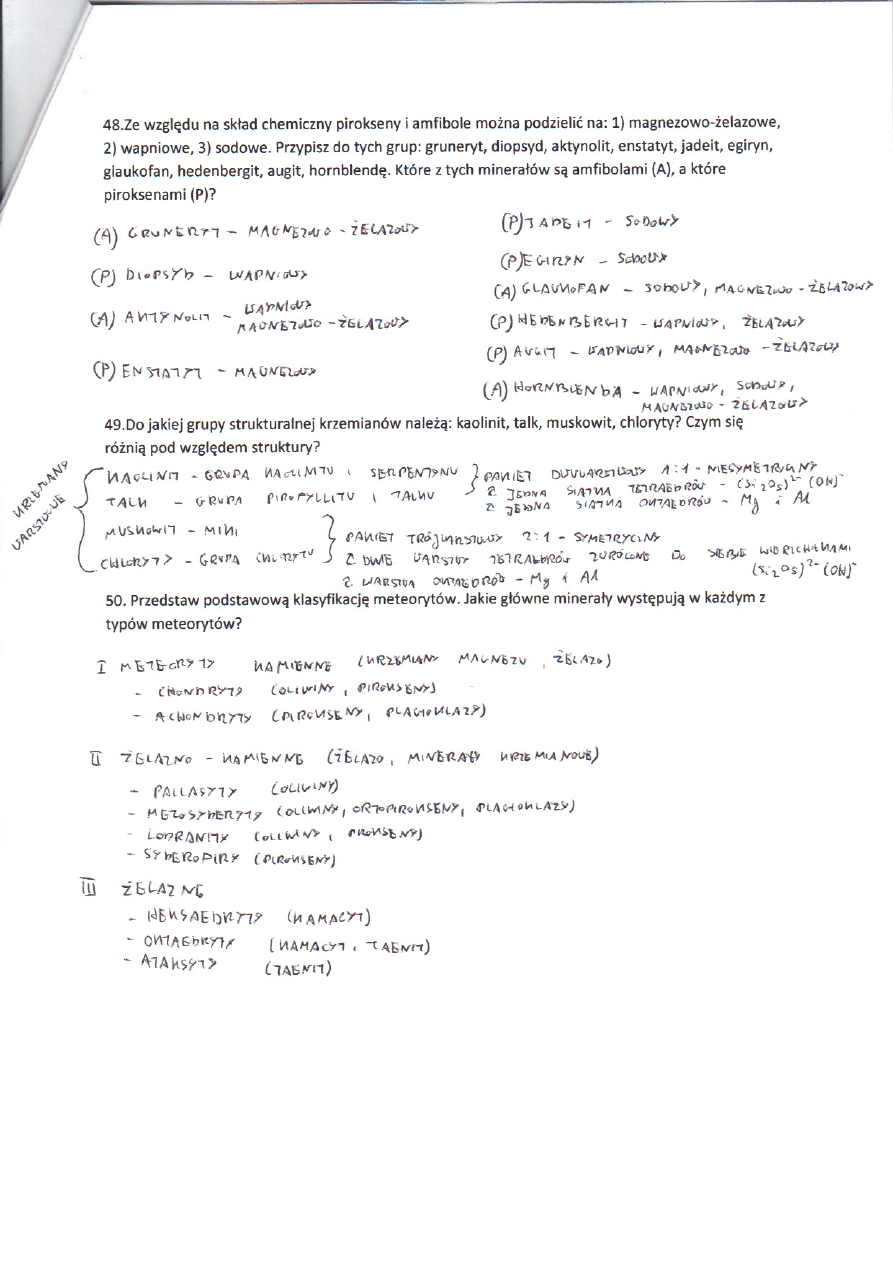 48.Ze względu na skład chemiczny pirokseny i amfibole można podzielić na: 1) magnezowo-żelazowe,
2) wapniowe, 3) sodowe. Przypisz do tych grup: gruneryt, diopsyd, aktynolit, enstatyt, jadeit, egiryn,
glaukofan, hedenbergit, augit, hornblendę. Które z tych minerałów są amfibolami (A), a które
piroksenami (P)?
(A) GRUNERYT - MAGNEZOWO - ŻELAZOWY
(P) DIOPSYD - WAPNIOWY
(A) AKTYNOLIT - WAPNIOWY
MAGNEZOWO - ŻELAZOWY
(P) ENSTATYT - MAGNEZOWY
(P) JADEIT - SODOWY
(P) EGIRYN - SODOWY
(A) GLAUKOFAN - SODOWY, MAGNEZOWO - ŻELAZOWY
(P) HEDENBERGIT - WAPNIOWY, ŻELAZOWY
(P) AUGIT - WAPNIOWY, MAGNEZOWO - ŻELAZOWY
(A) HORNBLENDA - WAPNIOWY, SODOWY,
MAGNEZOWO - ŻELAZOWY
49.Do jakiej grupy strukturalnej krzemianów należą: kaolinit, talk, muskowit, chloryty? Czym się
różnią pod względem struktury?
KRZEMIANY
WARSTWOWE
KAOLINIT - GRUPA KAOLINITU I SERPENTYNU
TALK - GRUPA PIROFYLLITU I TALKU
PAKIET DWUWARSTWOWY 1:1 - NIESYMETRYCZNY
Z JEDNĄ SIATKĄ TETRAEDRÓW - (Si2O5)2- (OH)-
Z JEDNĄ SIATKĄ OKTAEDRÓW - Mg i Al
MUSKOWIT - MIKI
CHLORYTY - GRUPA CHLORYTU
PAKIET TRÓJWARSTWOWY 2:1 - SYMETRYCZNY
Z DWIE WARSTWY TETRAEDRÓW ZWRÓCONE DO SIEBIE WIERZCHAMI
(Si2O5)2- (OH)-
Z WARSTWĄ OKTAEDRÓW - Mg i Al
50. Przedstaw podstawową klasyfikację meteorytów. Jakie główne minerały występują w każdym z
typów meteorytów?
I METEORYTY KAMIENNE (KRZEMIANY MAGNEZU, ŻELAZO)
- CHONDRYTY (OLIWINY, PIROKSENY)
- ACHONDRYTY (PIROKSENY, PLAGIOKLAZY)
II ŻELAZNO - KAMIENNE (ŻELAZO, MINERAŁY KRZEMIANOWE)
- PALLASYTY (OLIWINY)
- MEZOSYDERYTY (OLIWINY, ORTOPIROKSENY, PLAGIOKLAZY)
- LODRANITY (OLIWINY, PIROKSENY)
- SYDEROPIRY (PIROKSENY)
III ŻELAZNE
- HEKSAEDRYTY (KAMACYT)
- OKTAEDRYTY (KAMACYT, TAENIT)
- ATAKSYTY (TAENIT)